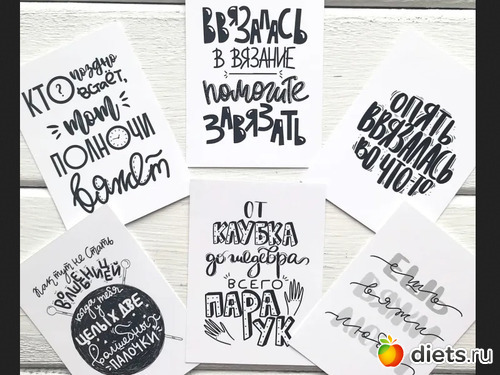 КТО поздно
встаёт,
тот
ПОЛНОЧИ
вяжет
ВВЯЗАЛАСЬ
В ВЯЗАНИЕ
помогите
ЗАВЯЗАТЬ
ОПЯТЬ
ВВЯЗАЛАСЬ
ВО ЧТО-ТО
Как тут не стать
ВОЛШЕБНИЦЕЙ
когда у тебя
ЦЕЛЫХ ДВЕ
волшебных
ПАЛОЧКИ
ОТ
КЛУБКА
до шедевра
ВСЕГО
ПАРА
РУК
ешь
вяжи
люби
diets.ru